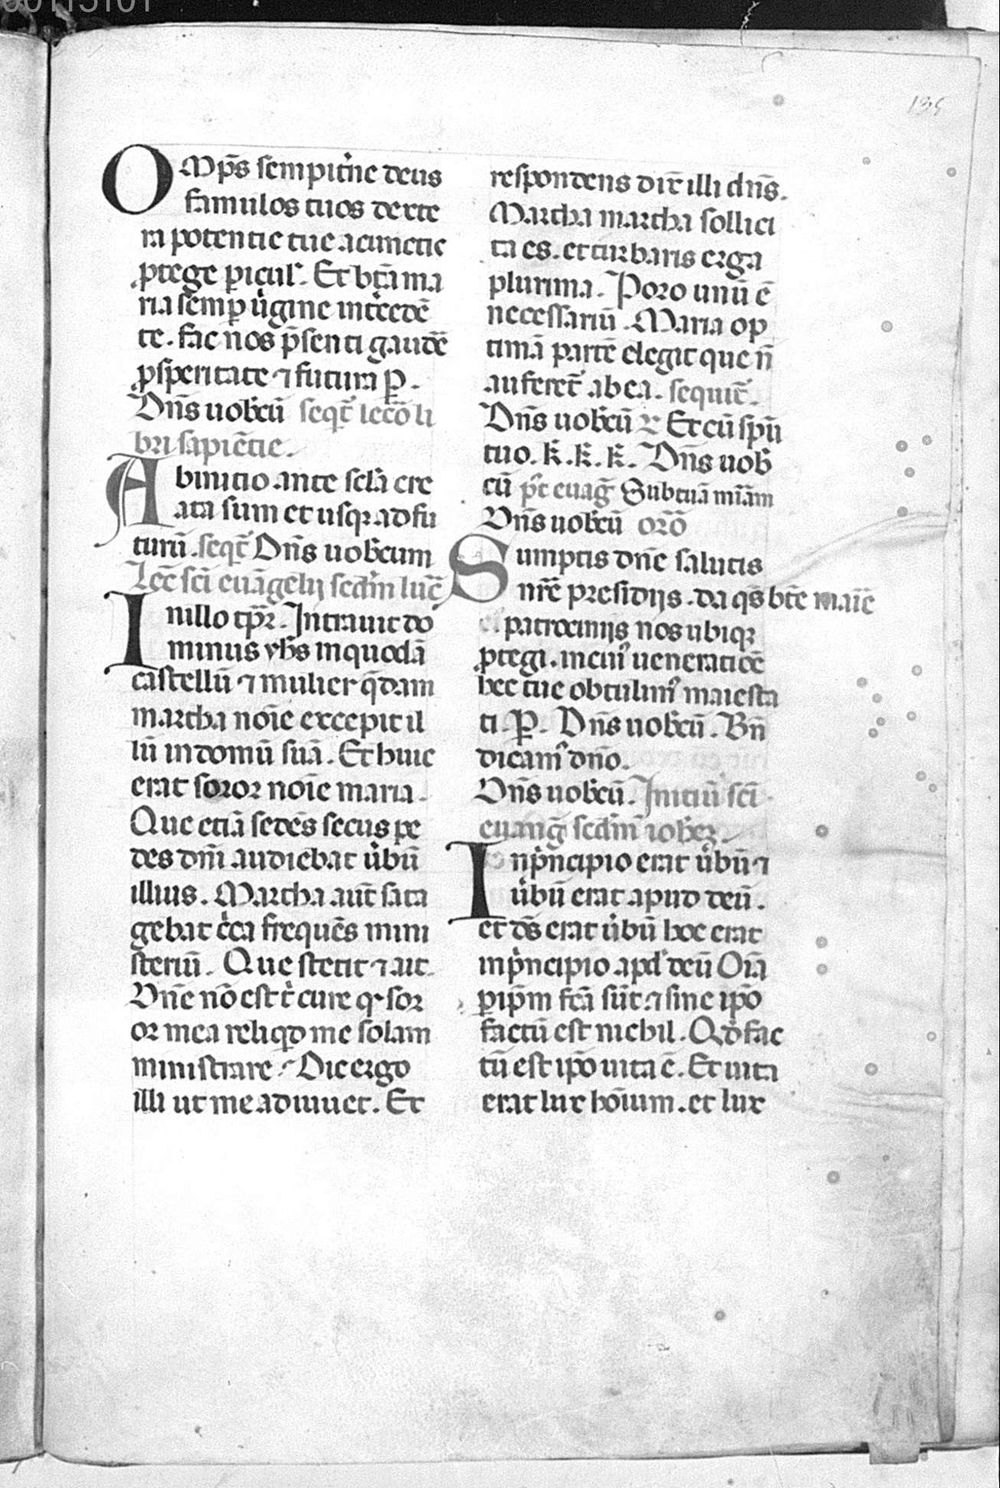 00113101
135
OMp̄s sempit̉ne deus
famulos tuos dexte
ra potentie tue a cunctis
ꝓtege ꝑicul'. Et bt̄a ma
ria semꝑ ũgine int̉cedē
te. fac nos p̄senti gaudē
ꝓsperitate ⁊ futura P̱.
Dn̄s uobcū seqt̄ lecō li
bri sapiētie.
Ab initio ante scl̄a cre
ata sum et usqꝫ ad fu
turū. seqt̄ Dn̄s uobcum
Lec̄ sc̄i euāgelij scdm̄ lucē
In illo tp̄r. Intrauit do
minus yhs in quodā
castellū ⁊ mulier q̄dam
martha noīe excepit il
lū in domū suā. Et huic
erat soror noīe maria.
Que etiā sedēs secus pe
des dn̄i audiebat ũbū
illius. Martha aut̄ sata
gebat c̉ca frequēs mini
steriū. Que stetit ⁊ ait.
Dn̄e nō est t̉ cure qꝛ sor
or mea reliqͥd me solam
ministrare. Dic ergo
illi ut me adiuuet. Et
respondens dix̄ illi dn̄s.
Martha martha sollici
ta es. et turbaris erga
plurima. Poro unū ē
necessariū. Maria op
timā partē elegit que n̄
auferet̄ ab ea. sequit̄.
Dn̄s uobcū ℟ Et cū spū
tuo. k̄. k̄. k̄. Dn̄s uob
cū p̄t euāḡ Sub tuā mīam
Dn̄s uobcū orō
Sumptis dn̄e salutis
nr̄e presidijs. da qs̄ bt̄e maīe
patrocinijs nos ubiqꝫ
ꝓtegi. in cui' ueneratiōe
hec tue obtulim' maiesta
ti. P̱. Dn̄s uobcū. Bn̄
dicam' dn̄o.
Dn̄s uobcū. Initiū sc̄i
euanḡ scdm̄ iohez.
In pͥncipio erat ũbū ⁊
ũbū erat apud deū.
et ds̄ erat ũbū hoc erat
in pͥncipio apd' deū Oīa
ꝑ ip̄m fc̄a sūt ⁊ sine ip̄o
factū est nichil. Qd̄ fac
tū est ip̄o uita ē. Et uita
erat lux hōium. et lux